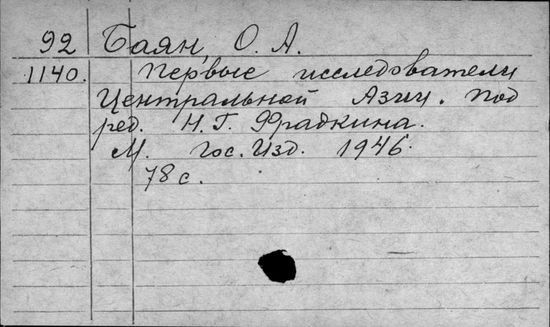 92 Баян, О. А.
1140. Первые исследователи
Центральной Азии. Под
ред. Н. Г. Фрадкина.
М. Гос. Изд. 1946.
78 с.